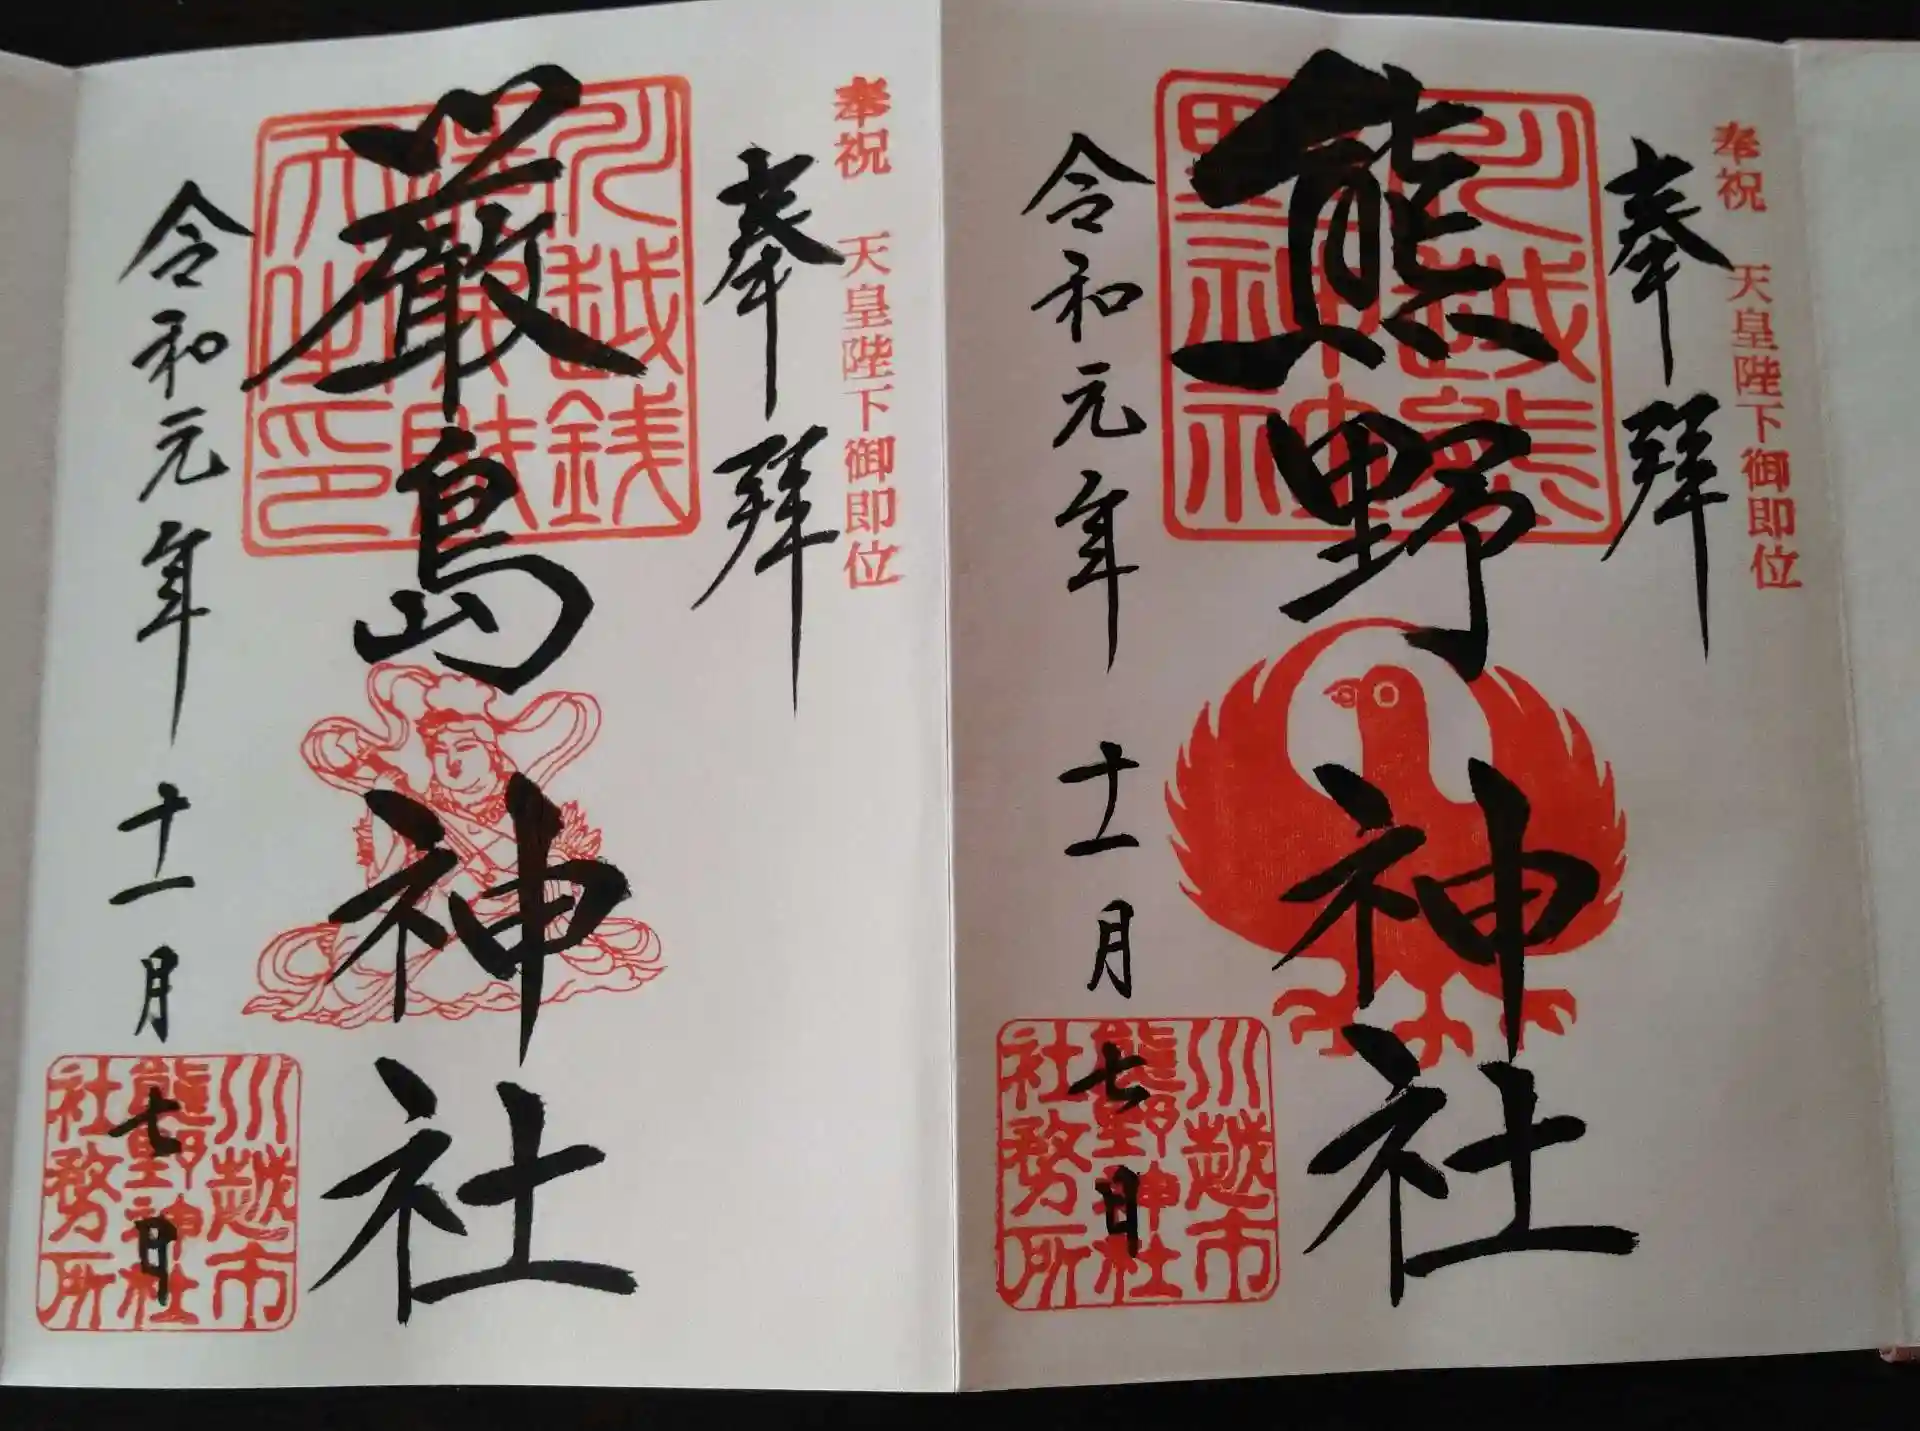 奉祝 天皇陛下御即位
奉拜
熊野神社
川越熊野神社
令和元年十一月七日
川越市
熊野神社
社務所
奉祝 天皇陛下御即位
奉拜
厳島神社
令和元年十一月七日
川越市
熊野神社
社務所